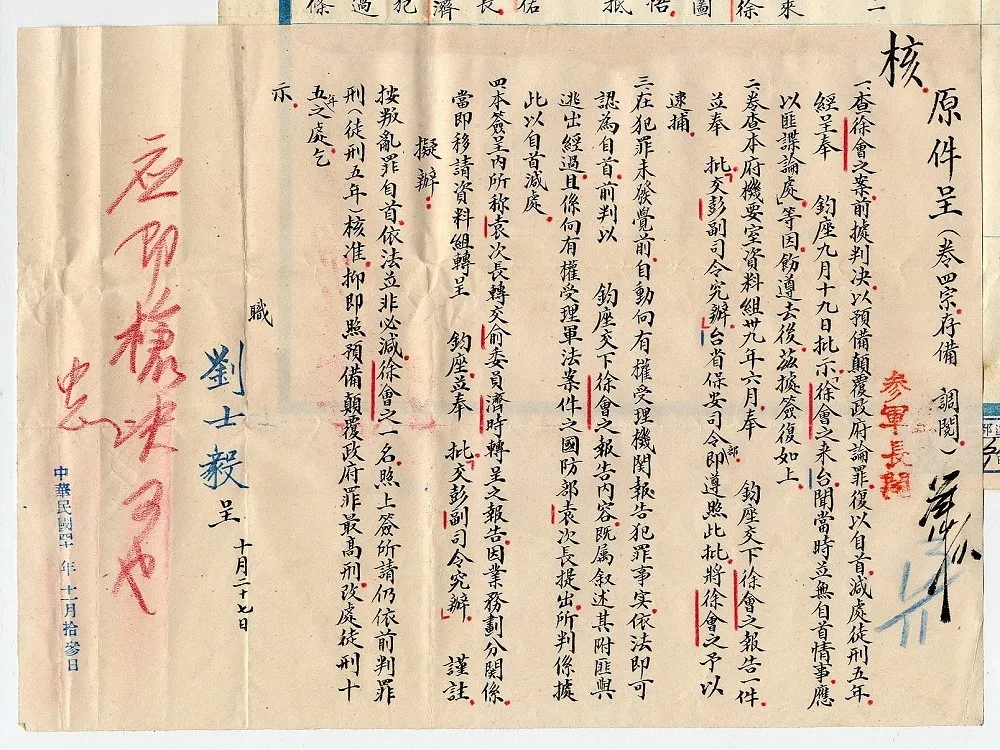 核
原件呈(卷四宗存備 調閱)
參軍長閱
一、查徐會之案前據判決以預備顛覆政府論罪復以自首減處徒刑五年、
經呈奉 鈞座九月十九日批示「徐會之來台聞當時並無自首情事、應
以匪諜論處」等因飭遵去後茲據簽復如上、
二、卷查本府機要室資料組卅九年六月奉 鈞座交下徐會之報告一件、
並奉 批「交彭副司令究辦」台省保安司令部即遵照此批將徐會之予以
逮捕、
三、在犯罪未發覺前自動向有權受理機関報告犯罪事实依法即可
認為自首、前判以 鈞座交下徐會之報告內容既属叙述其附匪與
逃出經過且係向有權受理軍法案件之國防部袁次長提出所判係據
此以自首減處、
四、本簽呈內所称袁次長轉交俞委員濟時轉呈之報告因業務劃分関係
當即移請資料組轉呈 鈞座並奉 批「交彭副司令究辦」 謹註
擬辦:
按叛亂罪自首依法並非必減徐會之一名照上簽所請仍依前判罪
刑(徒刑五年)核准抑即照預備顛覆政府罪最高刑改處徒刑十
五年之處乞
示、
職
劉士毅 呈 十月二十七日
应即槍决可也
中正
中華民國四十年十一月拾參日